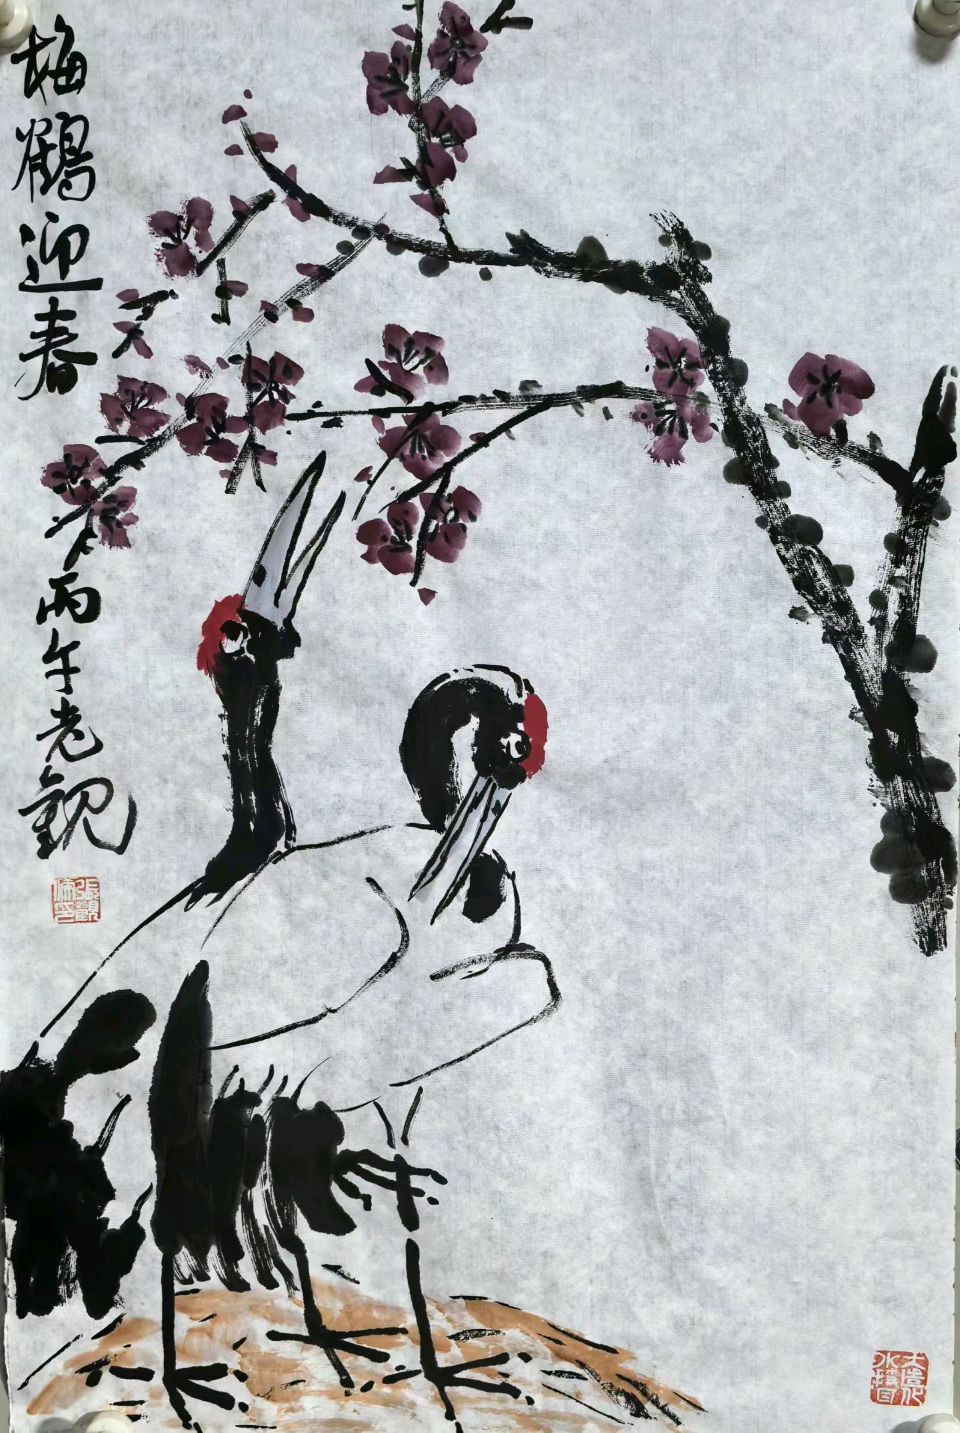 梅鶴迎春
丙午老觀